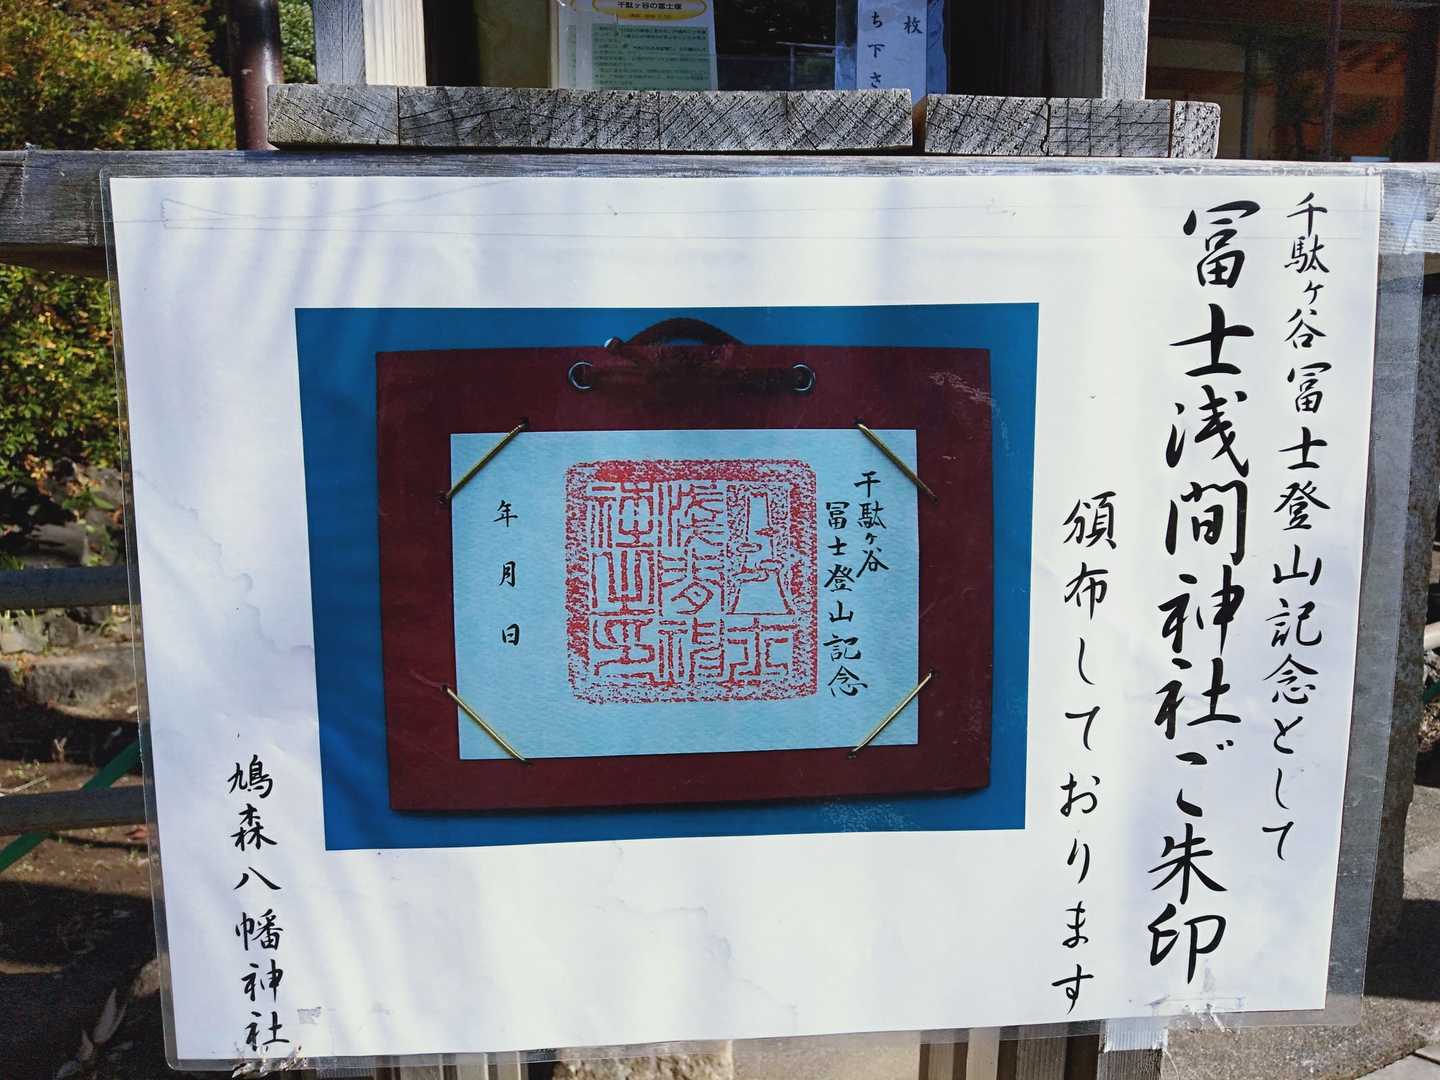 千駄ヶ谷の富士塚
枚
ち下さ
千駄ヶ谷冨士登山記念として
冨士浅間神社ご朱印
頒布しております
千駄ヶ谷
冨士登山記念
年 月 日
鳩森八幡神社